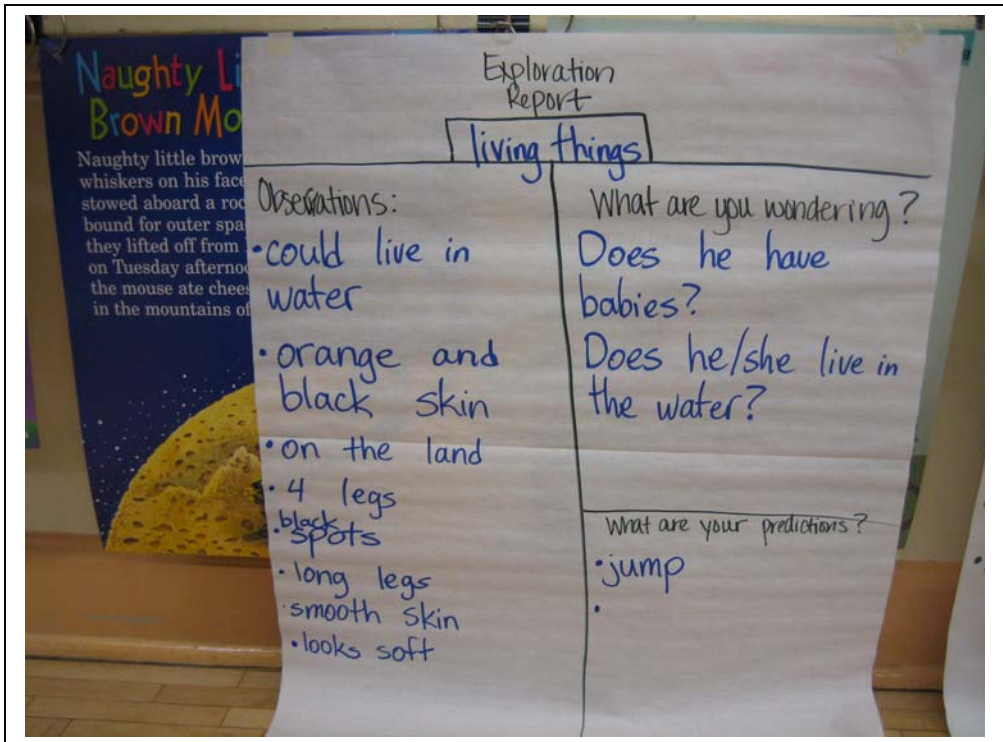 Naughty Li
Brown Mo
Naughty little brow
whiskers on his face
stowed aboard a roc
bound for outer spa
they lifted off from
on Tuesday afternoo
the mouse ate chees
in the mountains of
Exploration
Report
living things
Observations:
•could live in
water
•orange and
black skin
•on the land
•4 legs
black
•spots
•long legs
•smooth skin
•looks soft
What are you wondering?
Does he have
babies?
Does he/she live in
the water?
What are your predictions?
•jump
•